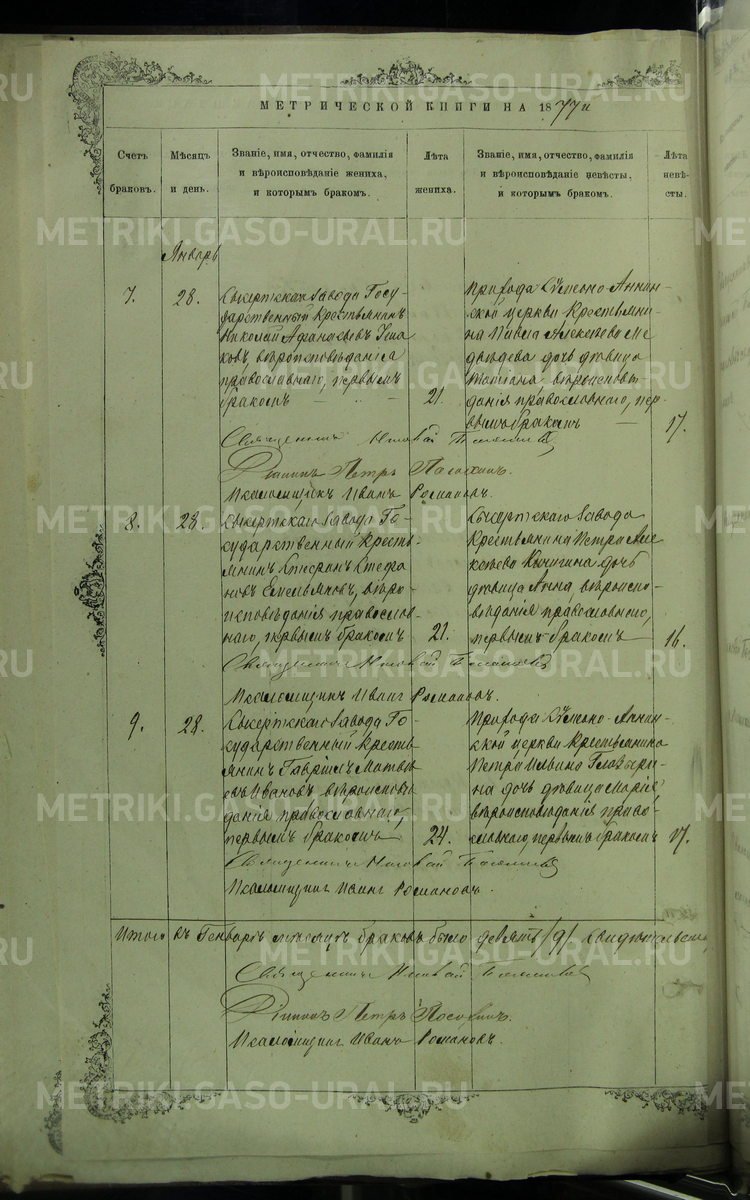 МЕТРИЧЕСКОЙ КНИГИ НА 1877 и
Счетъ браковъ.
Мѣсяцъ и день.
Званіе, имя, отчество, фамилія и вѣроисповѣданіе жениха, и которымъ бракомъ.
Лѣта жениха.
Званіе, имя, отчество, фамилія и вѣроисповѣданіе невѣсты, и которымъ бракомъ.
Лѣта невѣсты.
Январь
7.
28.
Сысертскаго завода Госу-
дарственный Крестьянинъ
Николай Афанасьевъ
вѣроисповѣданія
православнаго, первымъ
бракомъ
21.
прихода Сѵмеоно-Аннин-
ской церкви Крестьяни-
на Павла Алексѣева Ме
двѣдева дочь дѣвица
Татіана, вѣроисповѣ-
данія православнаго, пер-
вымъ бракомъ
17.
Священникъ
Діаконъ Петръ
Псаломщикъ Иванъ Романовъ.
8.
28.
Сысертскаго завода Го-
сударственный Кресть-
янинъ Стефа
новъ Емельяновъ, вѣро
исповѣданія православ-
наго, первымъ бракомъ
21.
Сысертскаго завода
Крестьянина Петра Але
ксѣева дочь
дѣвица Анна, вѣроиспо-
вѣданія православнаго,
первымъ бракомъ
16.
Священникъ
Псаломщикъ Иванъ Романовъ.
9.
28.
Сысертскаго завода Го-
сударственный Кресть
янинъ Гавріилъ Матвѣ
евъ Ивановъ вѣроисповѣ
данія православнаго,
первымъ бракомъ
24.
Прихода Сѵмеоно-Аннин-
ской церкви Крестьянина
Петра Ильина
на дочь дѣвица Марія
вѣроисповѣданія право-
славнаго, первымъ бракомъ
17.
Священникъ
Псаломщикъ Иванъ Романовъ.
Итого въ Генварѣ мѣсяцѣ браковъ было девять /9/.
Священникъ
Діаконъ Петръ
Псаломщикъ Иванъ Романовъ.
METRIKI.GASO-URAL.RU